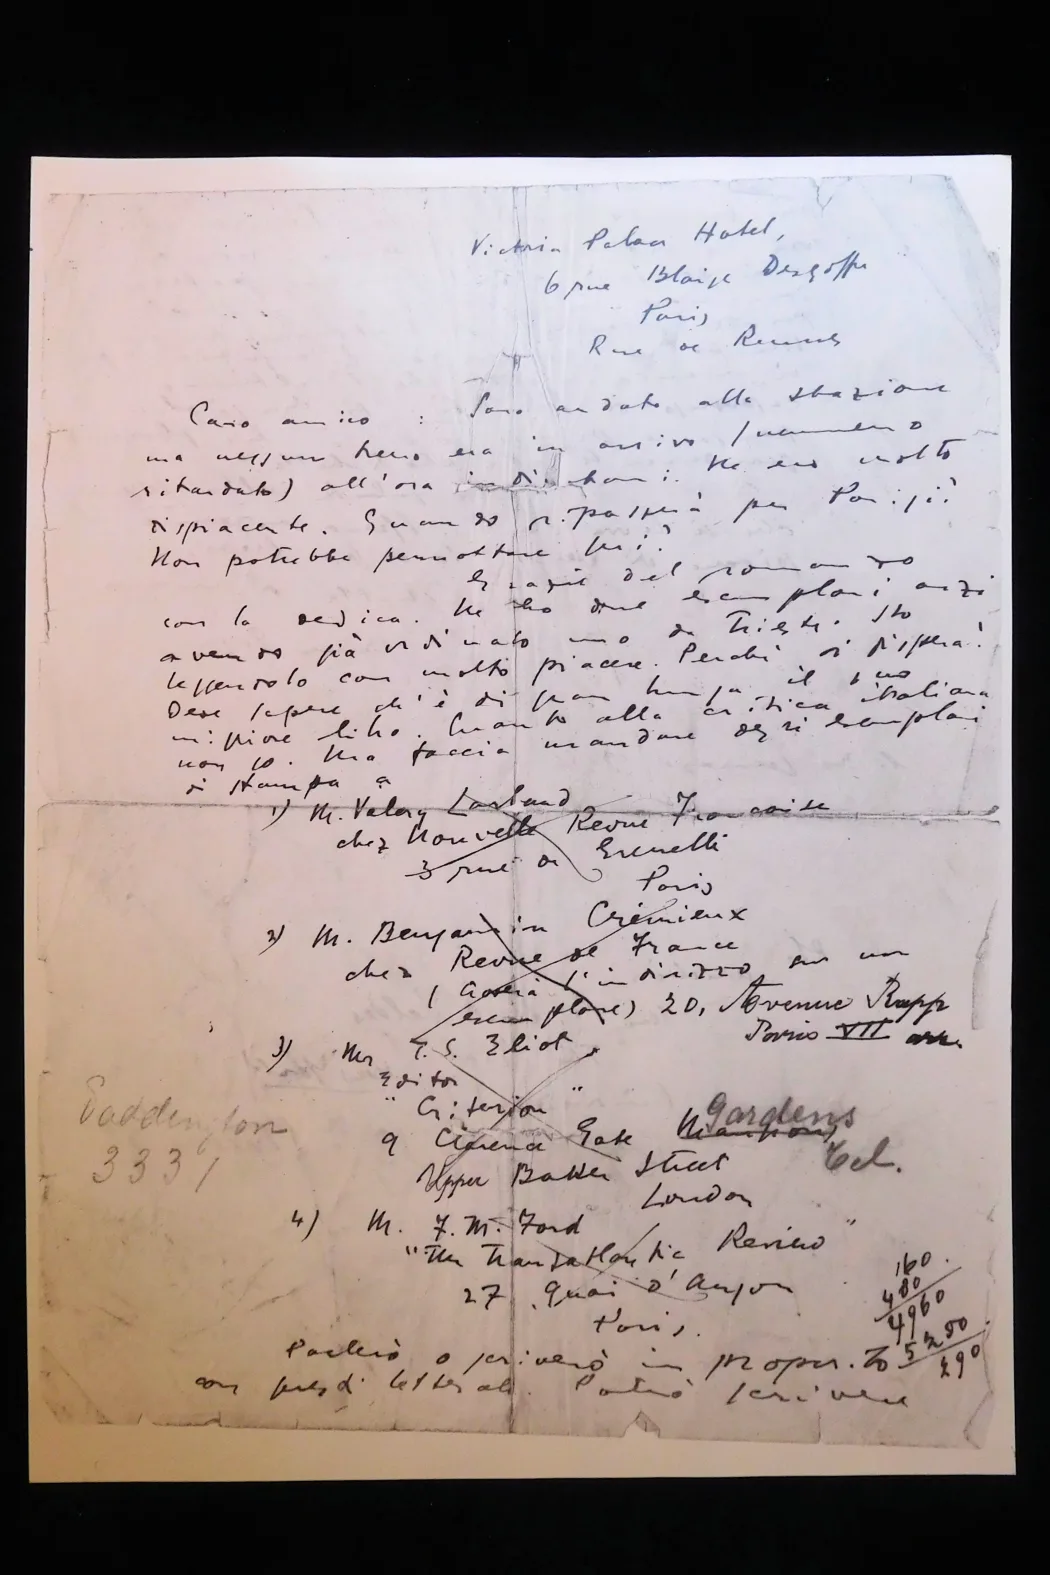 Victoria Palace Hotel,
6 rue Blaise Desgoffe
Paris
Rue de Rennes
Caro amico : Sono andato alla stazione
ma nessun treno era in arrivo (nemmeno
ritardato) all'ora indicatami. Ne ero molto
dispiacente. Quando ripasserà per Parigi?
Non potrebbe pernottare qui?
Grazie del romanzo
con la dedica. Ne ho due esemplari anzi
avendo già ordinato uno a Trieste. Sto
leggendolo con molto piacere. Perchè si dispera?
Deve sapere ch'è di gran lunga il suo
migliore libro. Quanto alla critica italiana
non so. Ma faccia mandare degli esemplari
di stampa a
1) M. Valery Larbaud
chez Nouvelle Revue Française
3 rue de Grenelle
Paris
2) M. Benjamin Crémieux
chez Revue de France
( l'indirizzo su un
esemplare) 20, Avenue Rapp
Paris VII arr.
3) Mr T. S. Eliot
Editor
"Criterion"
9 Clarence Gate Mansions Gardens
Upper Baker Street Tel.
London
Paddington
3331
4) M. F. M. Ford
"The Transatlantic Review"
27 Quai d'Anjou
Paris.
160
480
4960
5280
290
Parlerò o scriverò in proposito
con questi letterati. Potrò scrivere